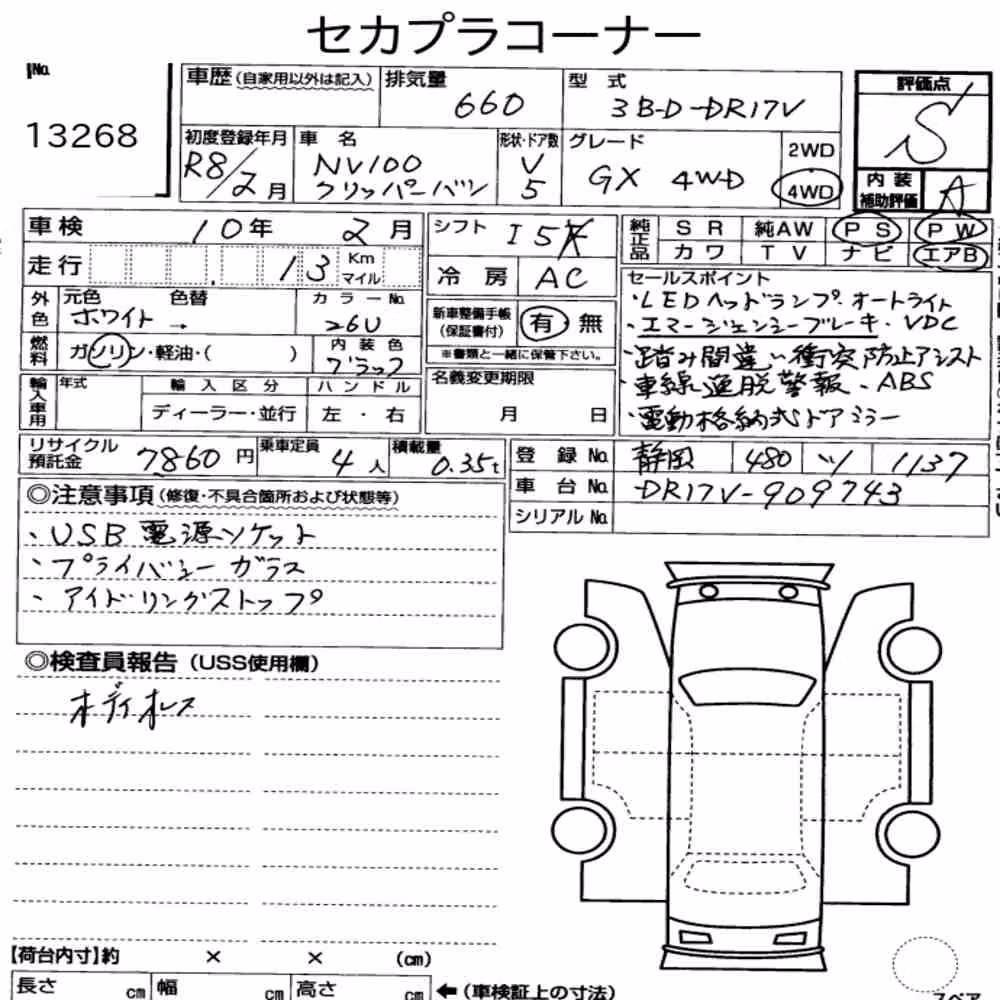 セカプラコーナー
No.
13268
車歴(自家用以外は記入)
排気量
660
型式
3B-D-DR17V
評価点
S
初度登録年月
R8/2月
車名
NV100
クリッパーバン
形状・ドア数
V
5
グレード
GX 4WD
2WD
4WD
内装
補助評価
A
車検
10年 2月
シフト
I5
純正品
SR 純AW PS PW
カワ TV ナビ エアB
走行
13 Km
マイル
冷房
AC
セールスポイント
・LEDヘッドランプ・オートライト
・エマージェンシーブレーキ・VDC
・踏み間違い衝突防止アシスト
・車線逸脱警報・ABS
・電動格納式ドアミラー
外色
元色 色替
ホワイト →
カラーNo.
26U
新車整備手帳
(保証書付)
有 無
※書類と一緒に保管下さい。
燃料
ガソリン・軽油・( )
内装色
ブラック
輸入車用
年式
輸入区分
ハンドル
ディーラー・並行
左・右
名義変更期限
月 日
リサイクル
預託金
7860円
乗車定員
4人
積載量
0.35t
登録No.
静岡 480 ツ 1137
車台No.
DR17V-909743
シリアルNo.
◎注意事項(修復・不具合箇所および状態等)
・USB電源ソケット
・プライバシーガラス
・アイドリングストップ
◎検査員報告(USS使用欄)
【荷台内寸】約 × × (cm)
長さ cm 幅 cm 高さ cm ←(車検証上の寸法)
スペア